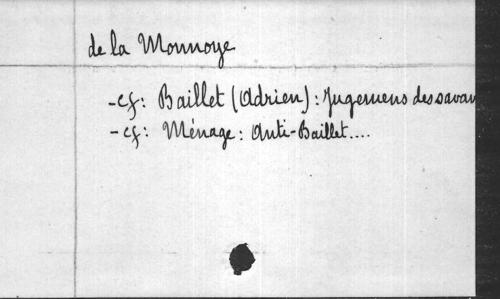 de la Monnoye
-cf: Baillet (Adrien): Jugemens des savan
-cf: Ménage: Anti-Baillet....